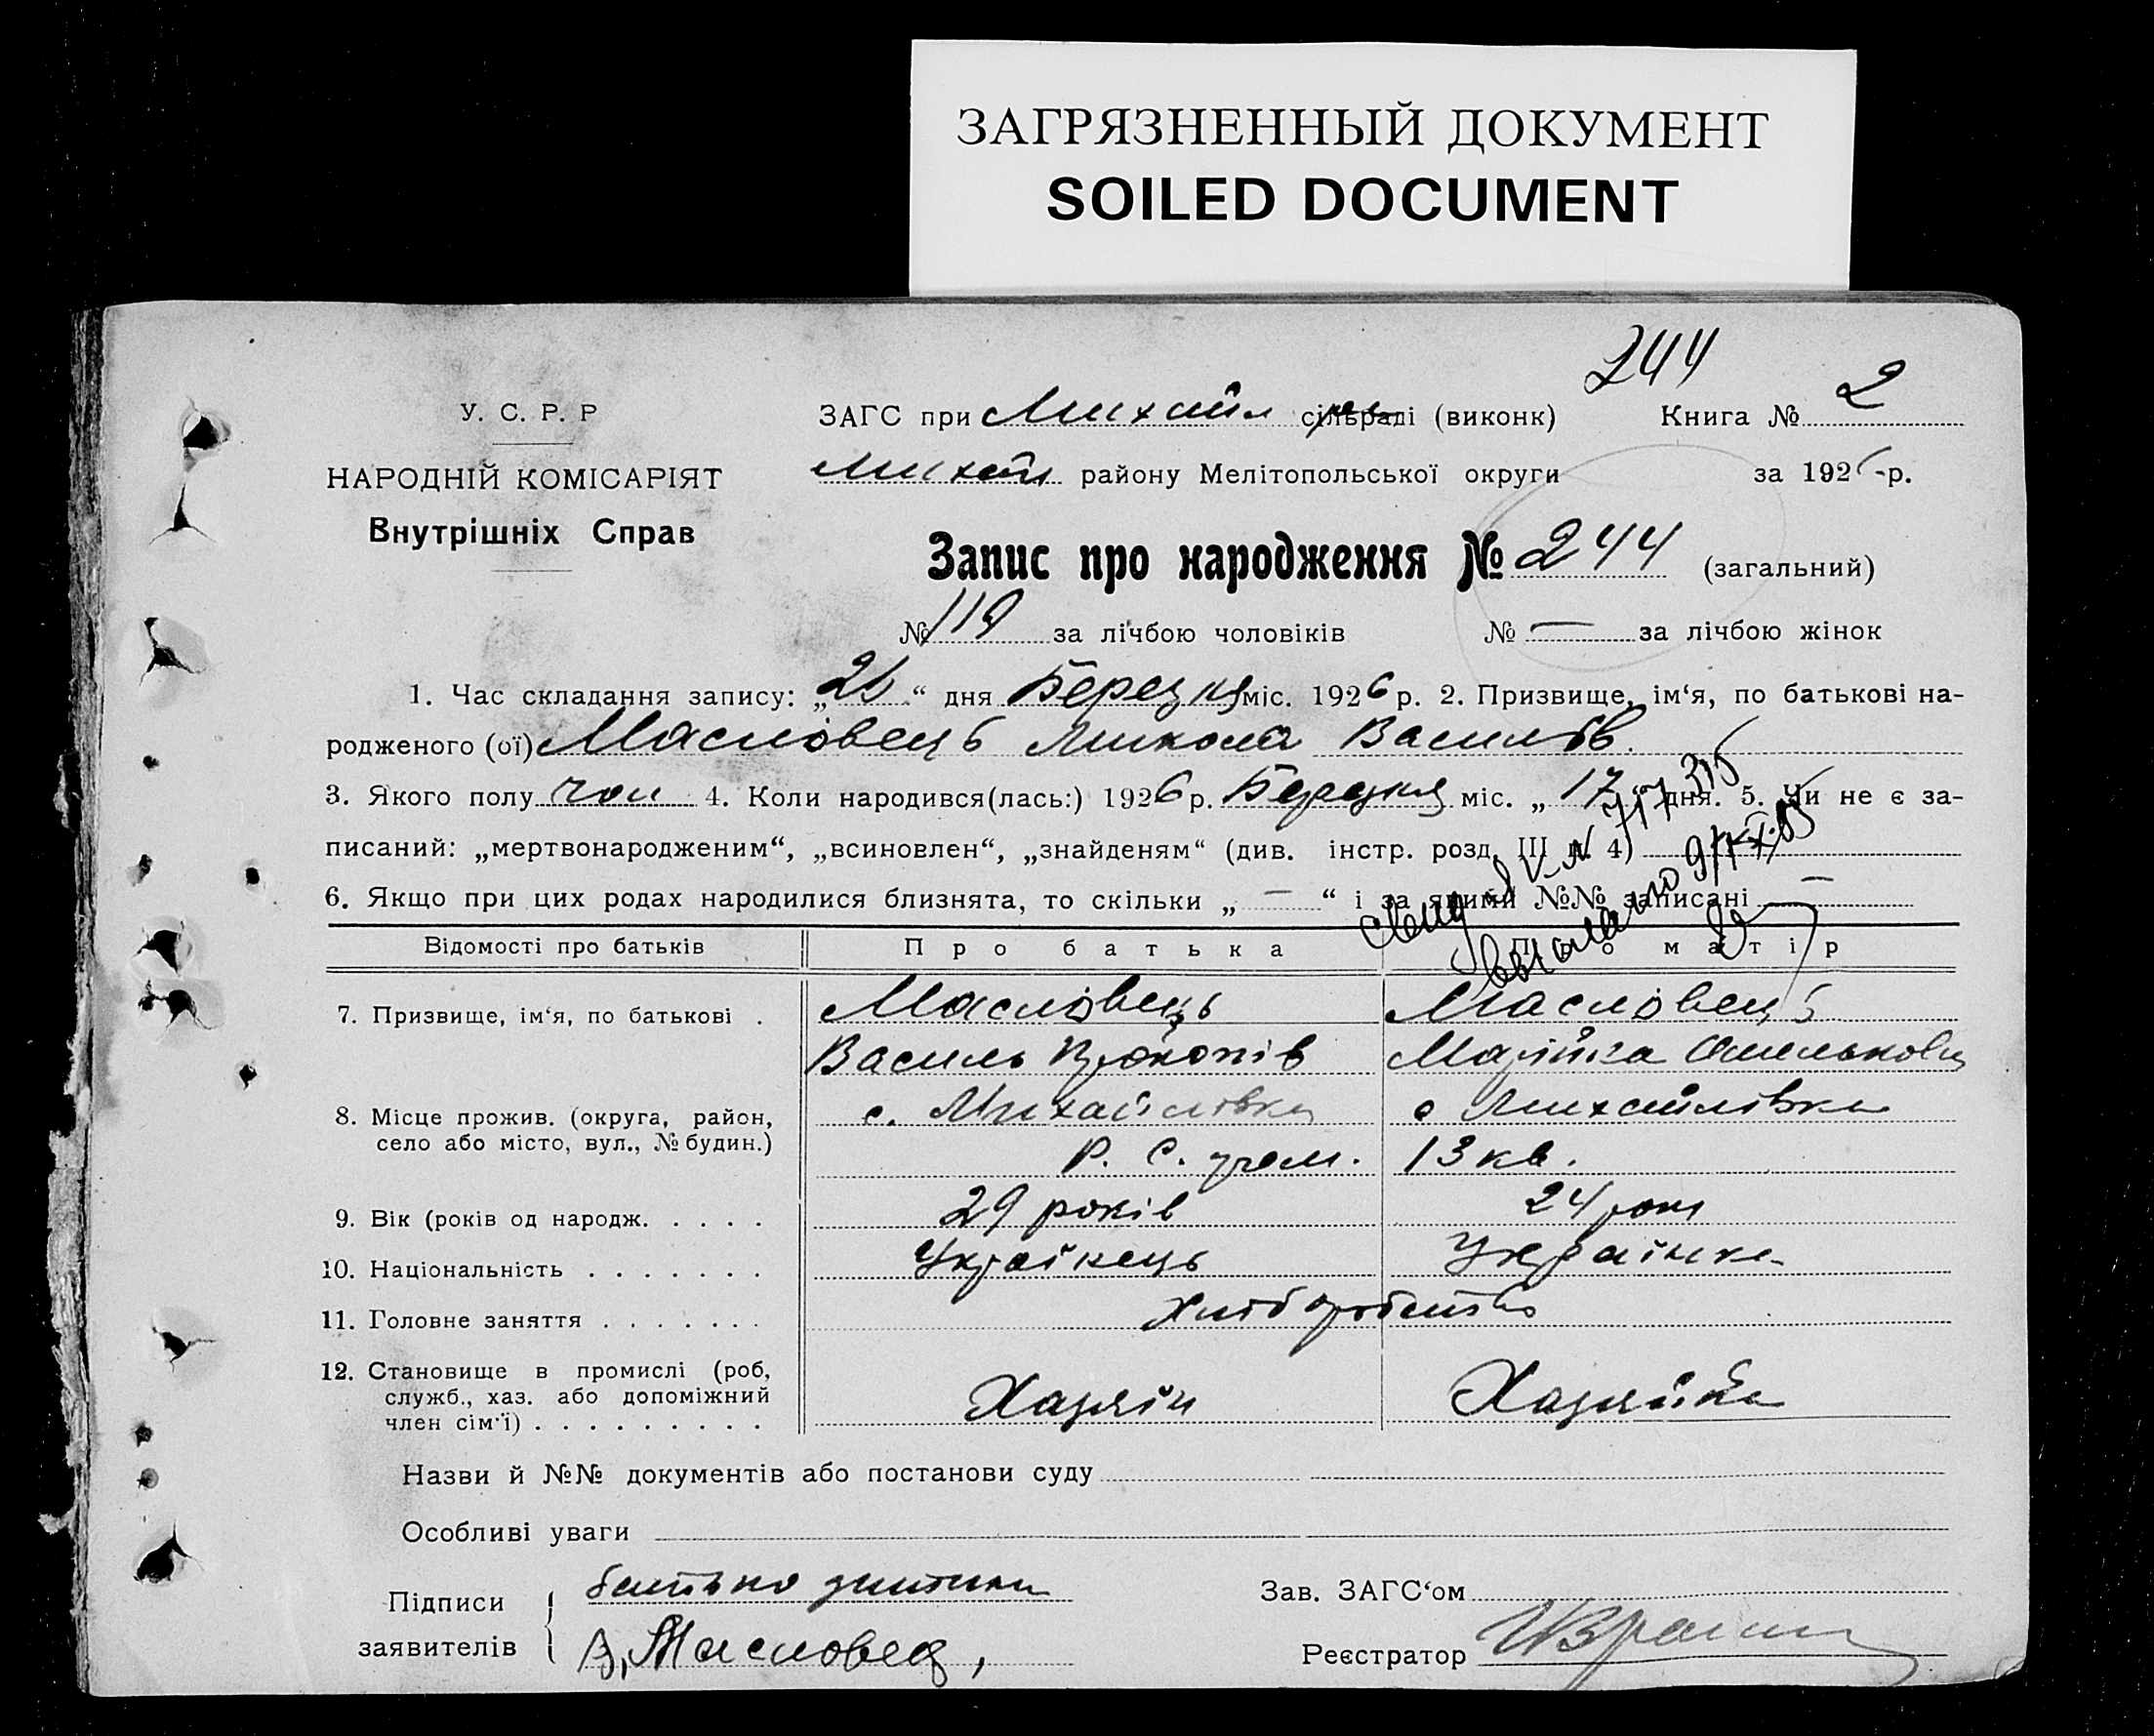 ЗАГРЯЗНЕННЫЙ ДОКУМЕНТ
SOILED DOCUMENT
244
У. С. Р. Р
НАРОДНІЙ КОМІСАРІЯТ
Внутрішніх Справ
ЗАГС при Михайл сільраді (виконк) Книга № 2
Михайл району Мелітопольської округи за 1926 р.
Запис про народження № 244 (загальний)
№ 119 за лічбою чоловіків № — за лічбою жінок
1. Час складання запису: „26“ дня Березня міс. 1926 р. 2. Призвище, ім‘я, по батькові на-
родженого (ої) Масловець Микола Василів.
3. Якого полу чол 4. Коли народився(лась:) 1926 р. Березня міс. „17“ дня. 5. Чи не є за-
писаний: „мертвонародженим“, „всиновлен“, „знайденям“ (див. інстр. розд. III п. 4)
6. Якщо при цих родах народилися близнята, то скільки „ — “ і за якими №№ записані —
Відомості про батьків Про батька Про матір
7. Призвище, ім‘я, по батькові . Масловець Масловець
Василь Прокопів Марійка Омелькова
8. Місце прожив. (округа, район, с. Михайлівка с Михайлівка
село або місто, вул., № будин.) Р. С. 13 кв.
9. Вік (років од народж. . . . . 29 років 24 роки
10. Національність . . . . . . . Українець Українка
11. Головне заняття . . . . . . . Хліборобство
12. Становище в промислі (роб,
служб., хаз. або допоміжний Хазяїн Хазяйка
член сім‘ї) . . . . . . . . .
Назви й №№ документів або постанови суду
Особливі уваги
Підписи батько дитини Зав. ЗАГС‘ом
заявителів В. Масловец, Реєстратор